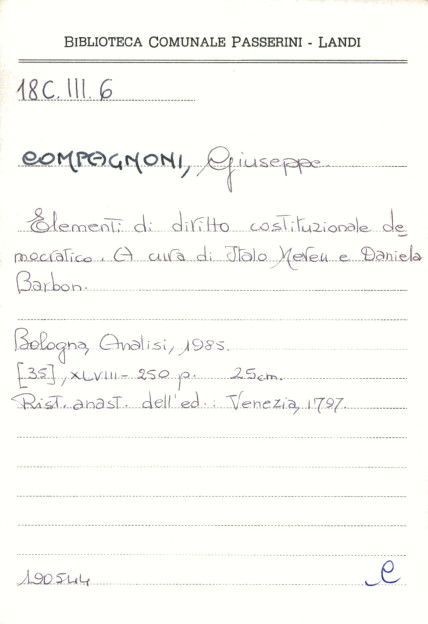 BIBLIOTECA COMUNALE PASSERINI - LANDI
18C. III. 6
COMPAGNONI, Giuseppe
Elementi di diritto costituzionale de
mocratico. A cura di Italo Mereu e Daniela
Barbon.
Bologna, Analisi, 1985.
[35], XLVIII - 250 p. 25cm.
Rist. anast. dell'ed.: Venezia, 1797.
190544
e